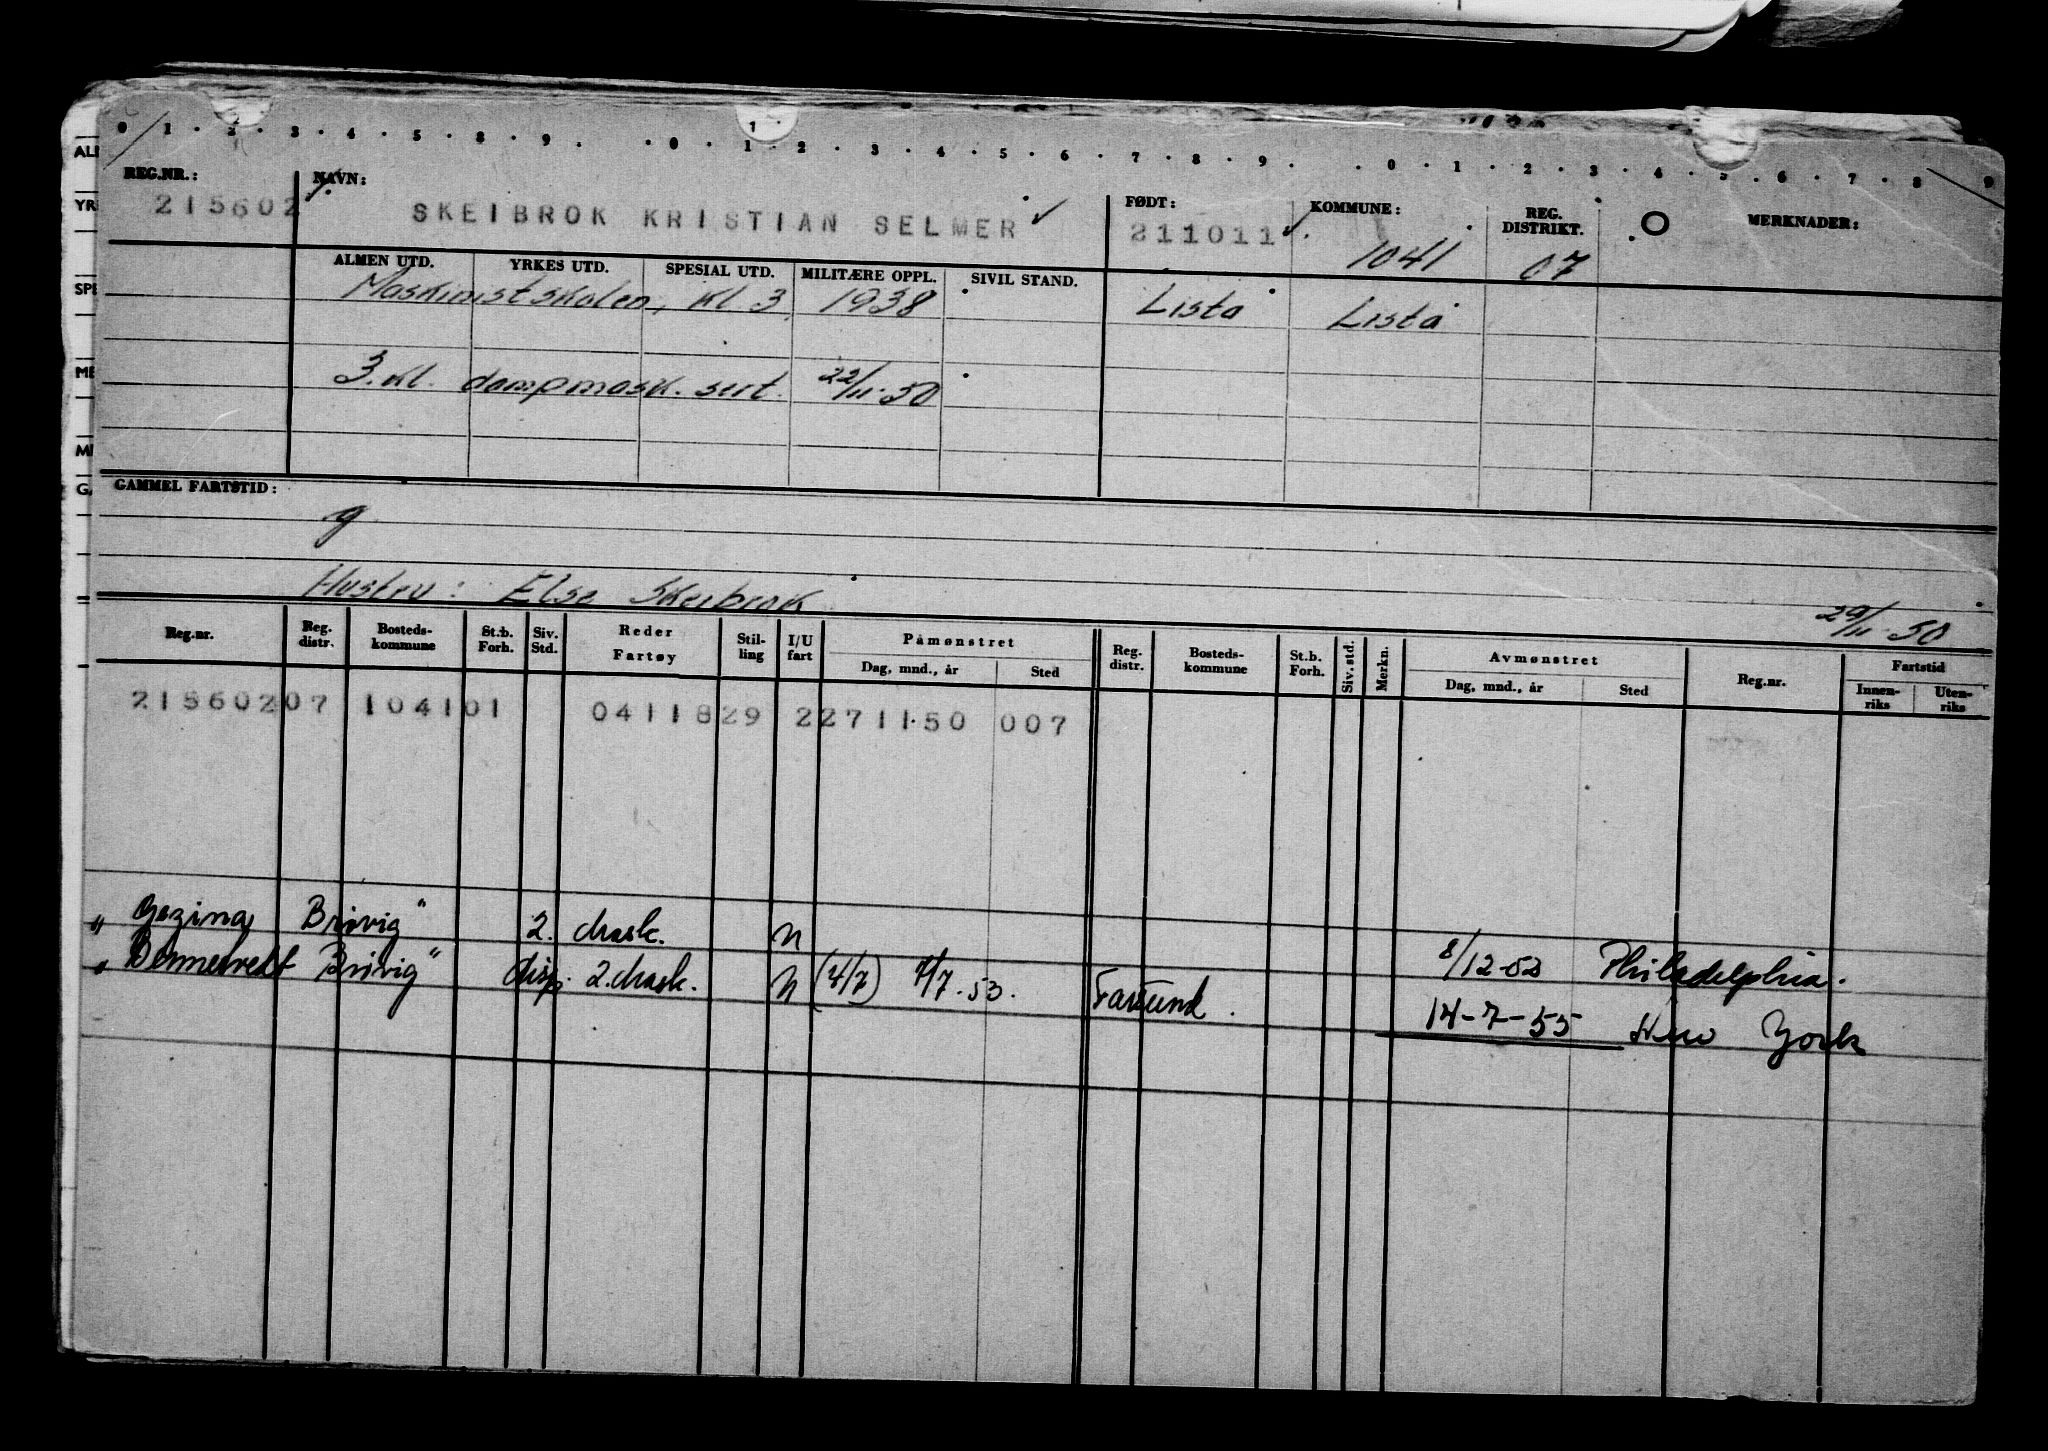 0 1 2 3 4 5 6 7 8 9 0 1 2 3 4 5 6 7 8 9 0 1 2 3 4 5 6 7 8 9
REG.NR.: NAVN: FØDT: KOMMUNE: REG. DISTRIKT. O MERKNADER:
215602 SKEIBROK KRISTIAN SELMER 211011 1041 07
ALMEN UTD. YRKES UTD. SPESIAL UTD. MILITÆRE OPPL. SIVIL STAND.
Maskinistskolen, kl. 3 1938 Lista Lista
3. kl. dampmask. sert. 22/11-50
GAMMEL FARTSTID:
g
Hustru: Else Skeibrok
29/11-50
Reg.nr. Reg. distr. Bosteds-kommune St.b. Forh. Siv. Std. Reder Fartøy Stil-ling I/U fart Påmønstret Dag, mnd., år Sted Reg. distr. Bosteds-kommune St.b. Forh. Siv. std. Merkn. Avmønstret Dag, mnd., år Sted Reg.nr. Fartstid Innen-riks Uten-riks
215602 07 1041 01 0411829 2 271150 007
"Gezina Brøvig" 2. mask. n 8/12-52 Philadelphia.
"Bennestvedt Brøvig" disp. 2. mask. n (4/7) 7/7.53. Farsund. 14-7-55 New York